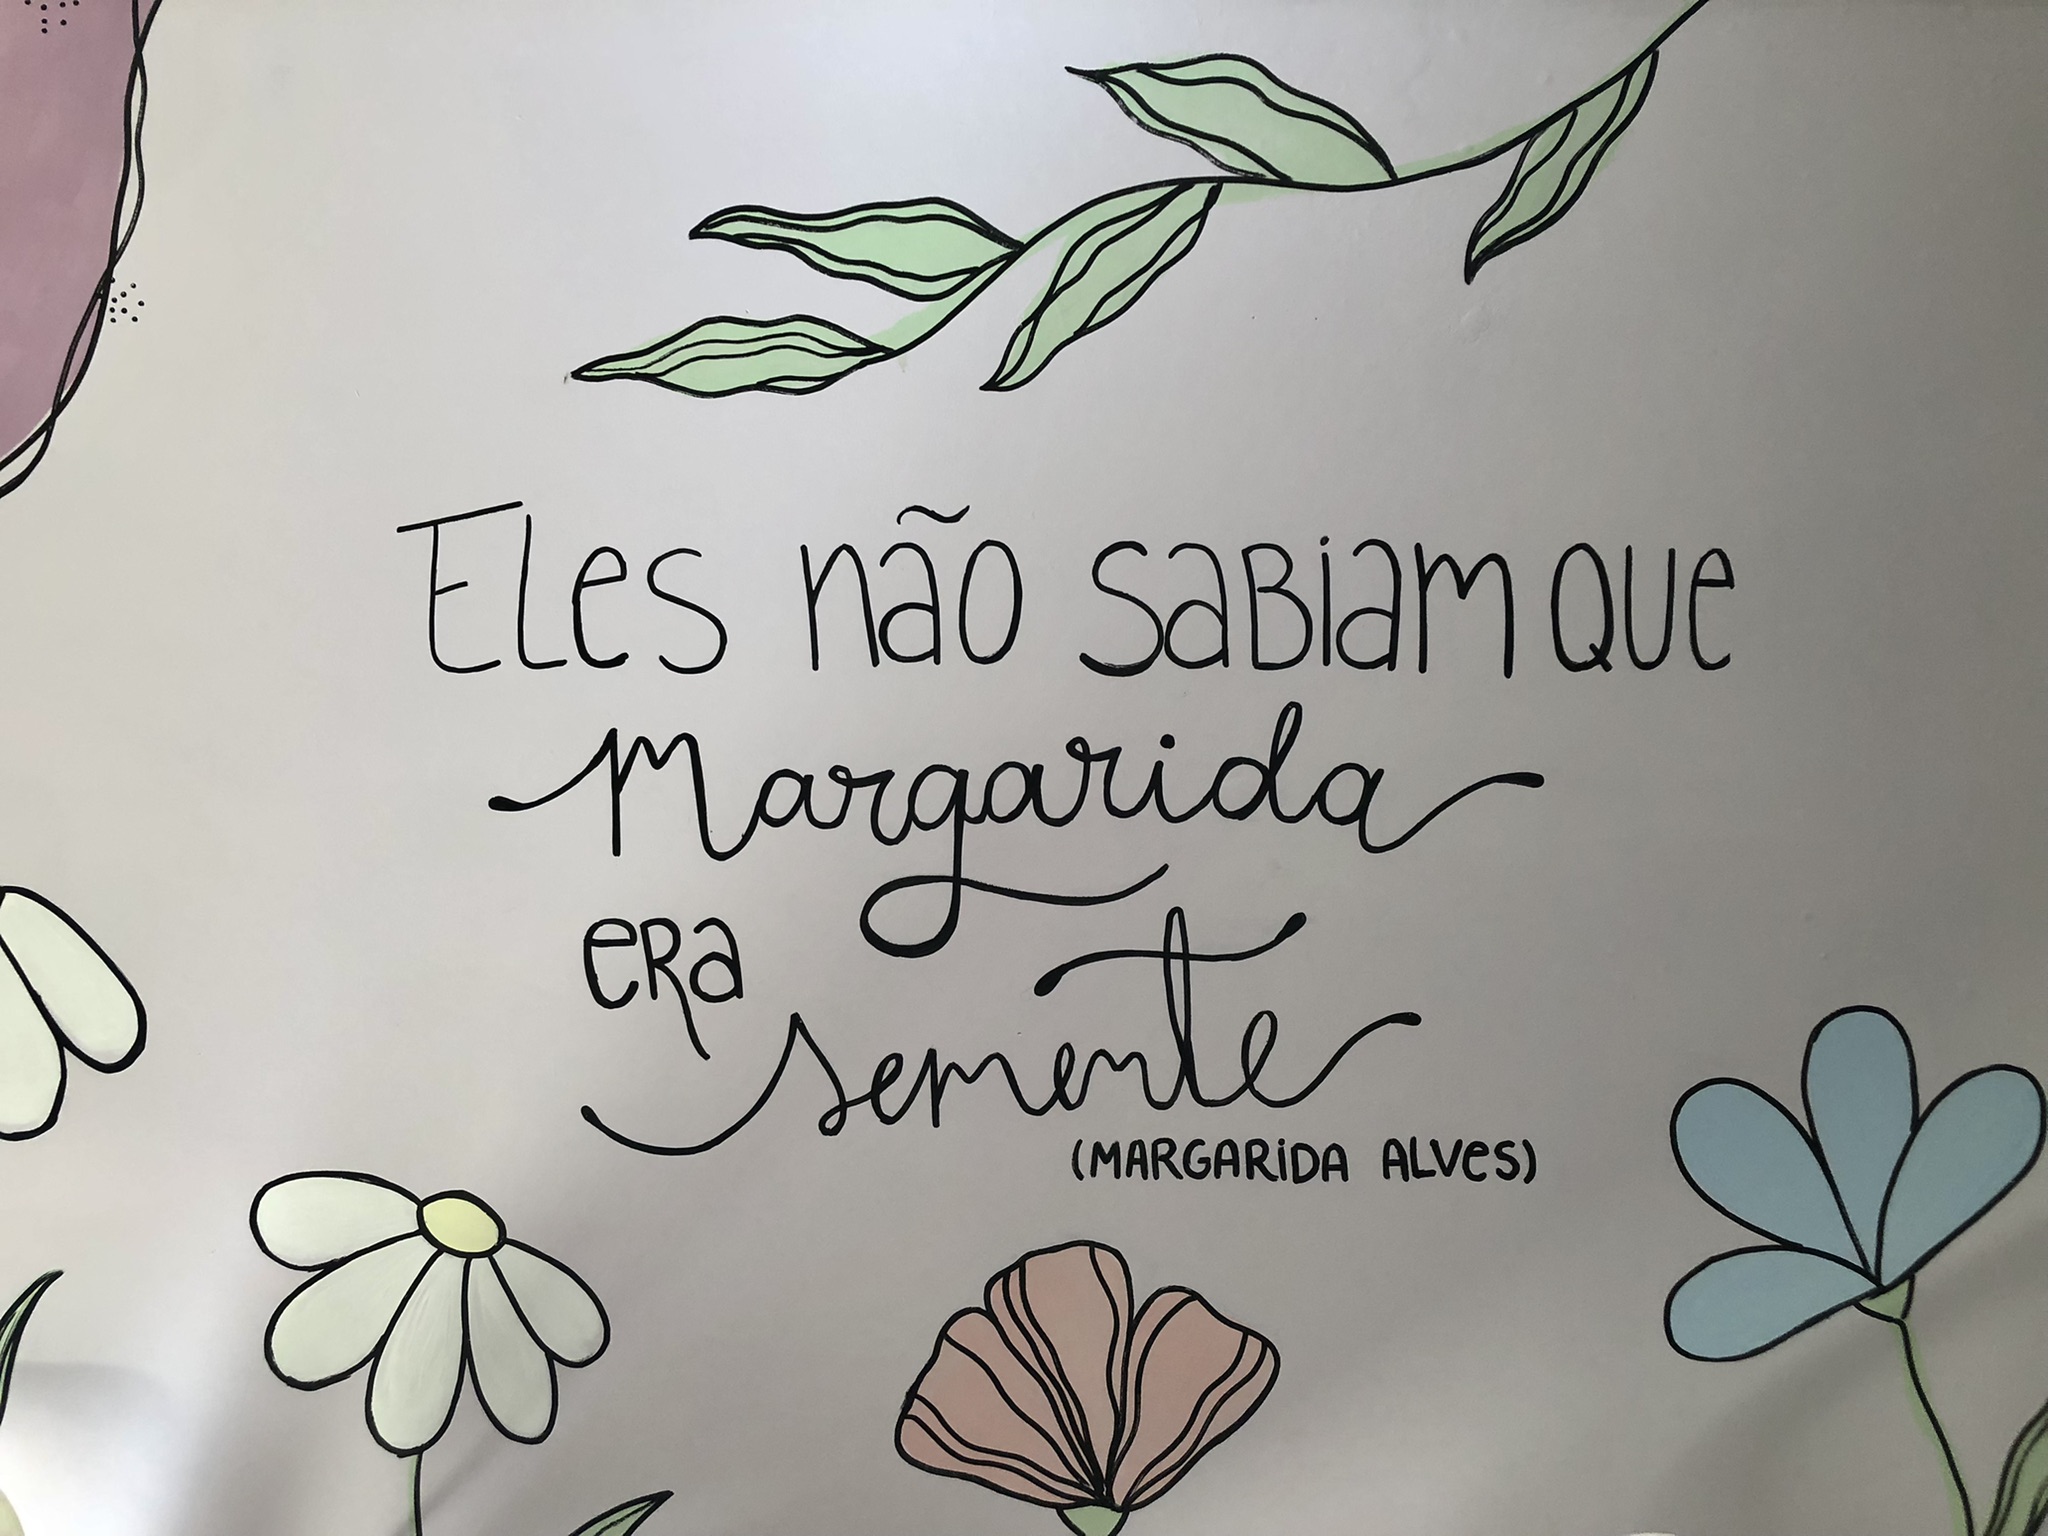 Eles não sabiam que
Margarida
era
semente
(MARGARIDA ALVES)